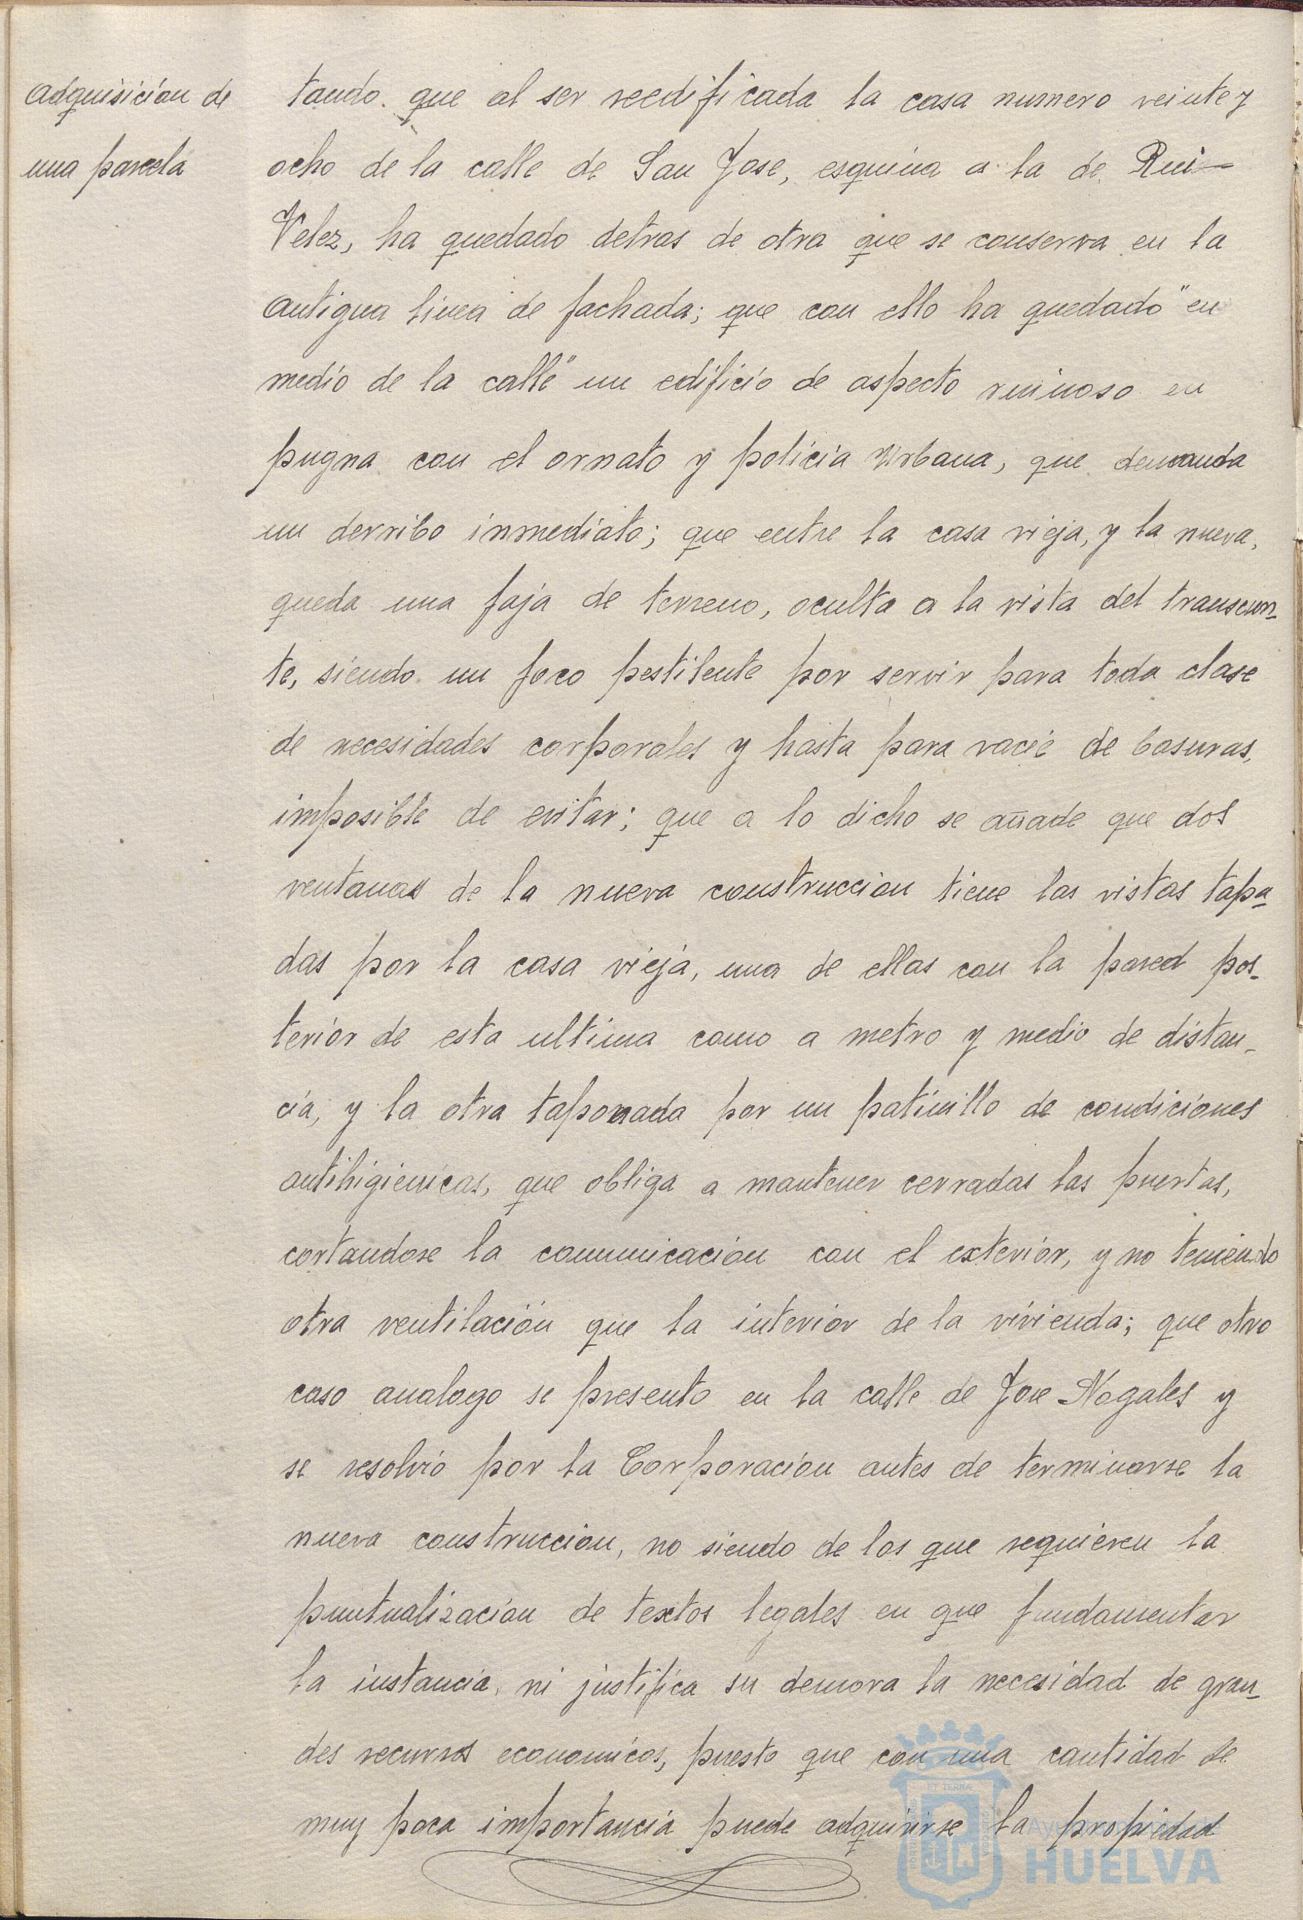 adquisicion de
una parcela
tando. que al ser reedificada la casa numero veinte y
ocho de la calle de San Jose, esquina a la de Rui-
Velez, ha quedado detras de otra que se conserva en la
antigua linea de fachada; que con ello ha quedado "en
medio de la calle" un edificio de aspecto ruinoso en
pugna con el ornato y policia Urbana, que demanda
un derribo inmediato; que entre la casa vieja, y la nueva,
queda una faja de terreno, oculta a la vista del transeun-
te, siendo un foco pestilente por servir para toda clase
de necesidades corporales y hasta para vacie de basuras,
imposible de evitar; que a lo dicho se añade que dos
ventanas de la nueva construccion tiene las vistas tapa-
das por la casa vieja, una de ellas con la pared pos-
terior de esta ultima como a metro y medio de distan-
cia, y la otra taponada por un patinillo de condiciones
antihigienicas, que obliga a mantener cerradas las puertas,
cortandose la comunicación con el exterior, y no teniendo
otra ventilación que la interior de la vivienda; que otro
caso analogo se presento en la calle de Jose Nogales y
se resolvio por la Corporacion antes de terminarse la
nueva construccion, no siendo de los que requieren la
puntualizacion de textos legales en que fundamentar
la instancia, ni justifica su demora la necesidad de gran-
des recursos economicos, puesto que con una cantidad de
muy poca importancia puede adquirirse la propiedad
HUELVA